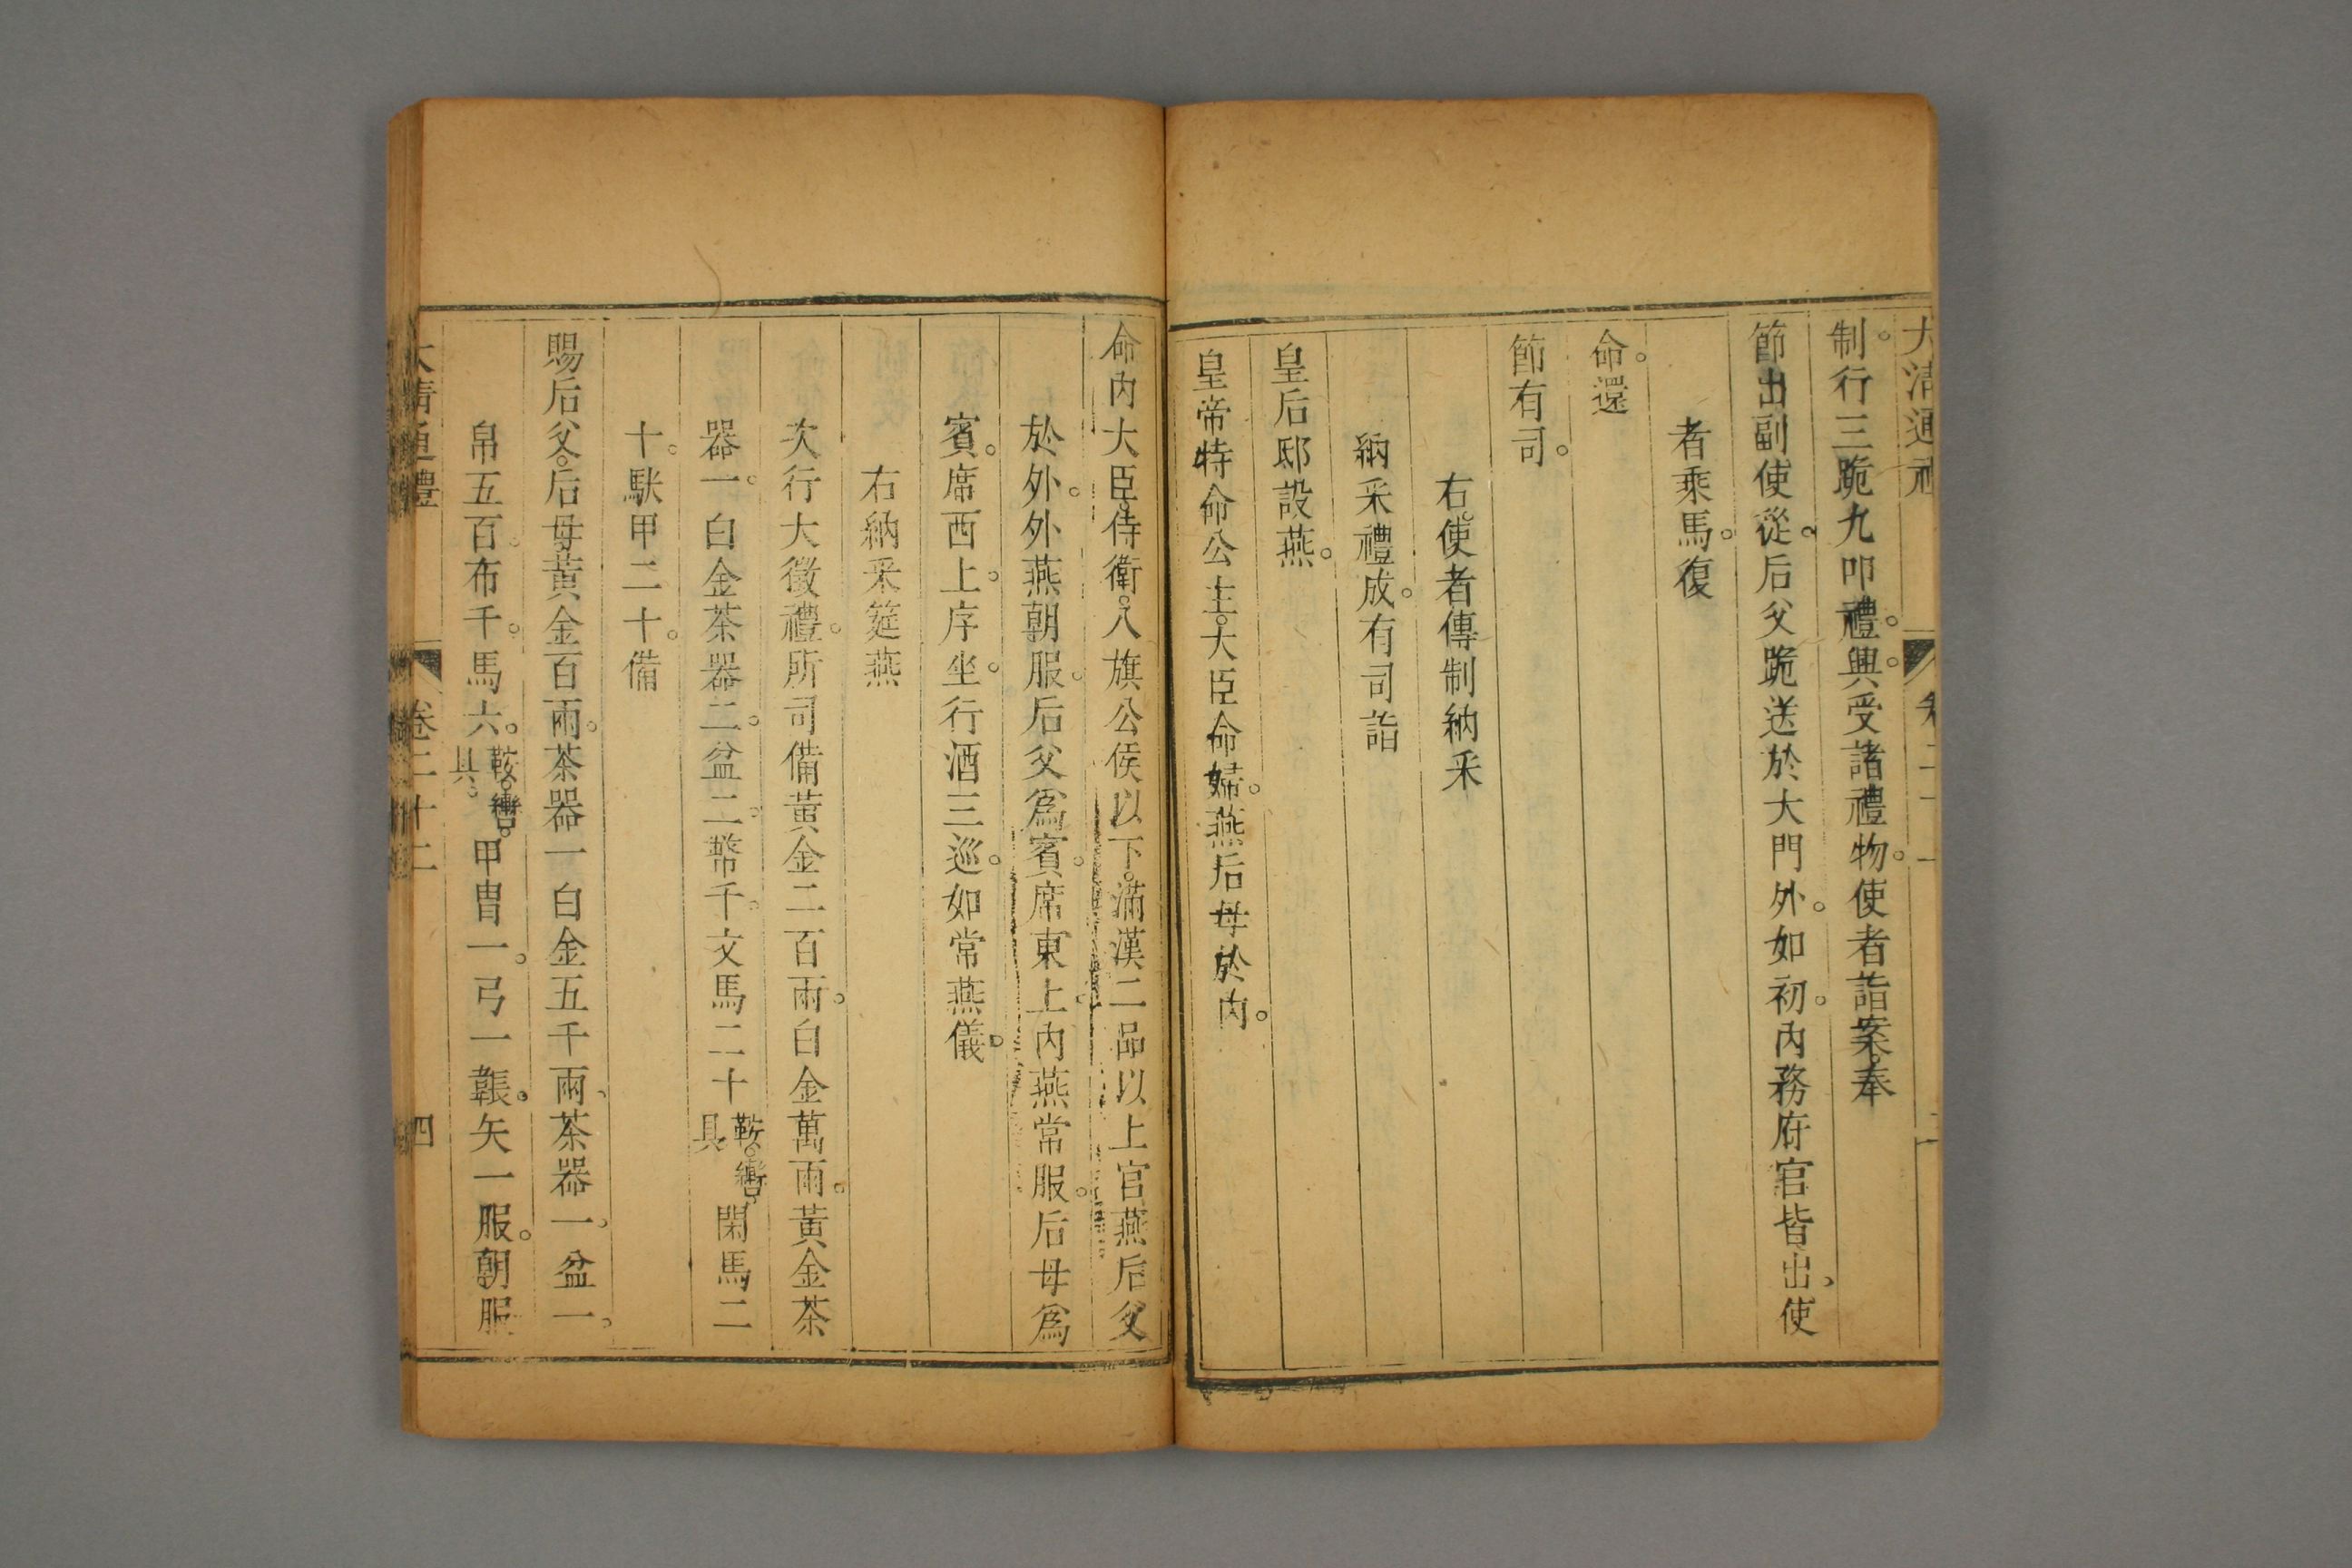 大清通禮
制。行三跪九叩禮。興。受諸禮物。使者詣案。奉
節出副使從。后父跪送於大門外。如初。內務府官皆出、使
者乘馬。復
命。還
節有司。
右。使者傳制納采
納采禮成。有司詣
皇后邸設燕。
皇帝特命公主。大臣命婦。燕后母於內。
命內大臣。侍衛。八旗公侯以下。滿漢二品以上官燕后父
於外。外燕朝服。后父爲賓。席東上。內燕常服。后母爲
賓。席西上。序坐。行酒三巡。如常燕儀。
右納采筵燕
次行大徵禮。所司備黃金二百兩。白金萬兩。黃金茶
器一。白金茶器二。盆二。幣千。文馬二十鞍。轡。具閑馬二
十。馱甲二十。備
賜后父。后母黃金百兩。茶器一白金五千兩、茶器一。盆一。
帛五百。布千。馬六。鞍。轡。具。甲冑一。弓一韔。矢一服。朝服
大清通禮 卷二十二 四